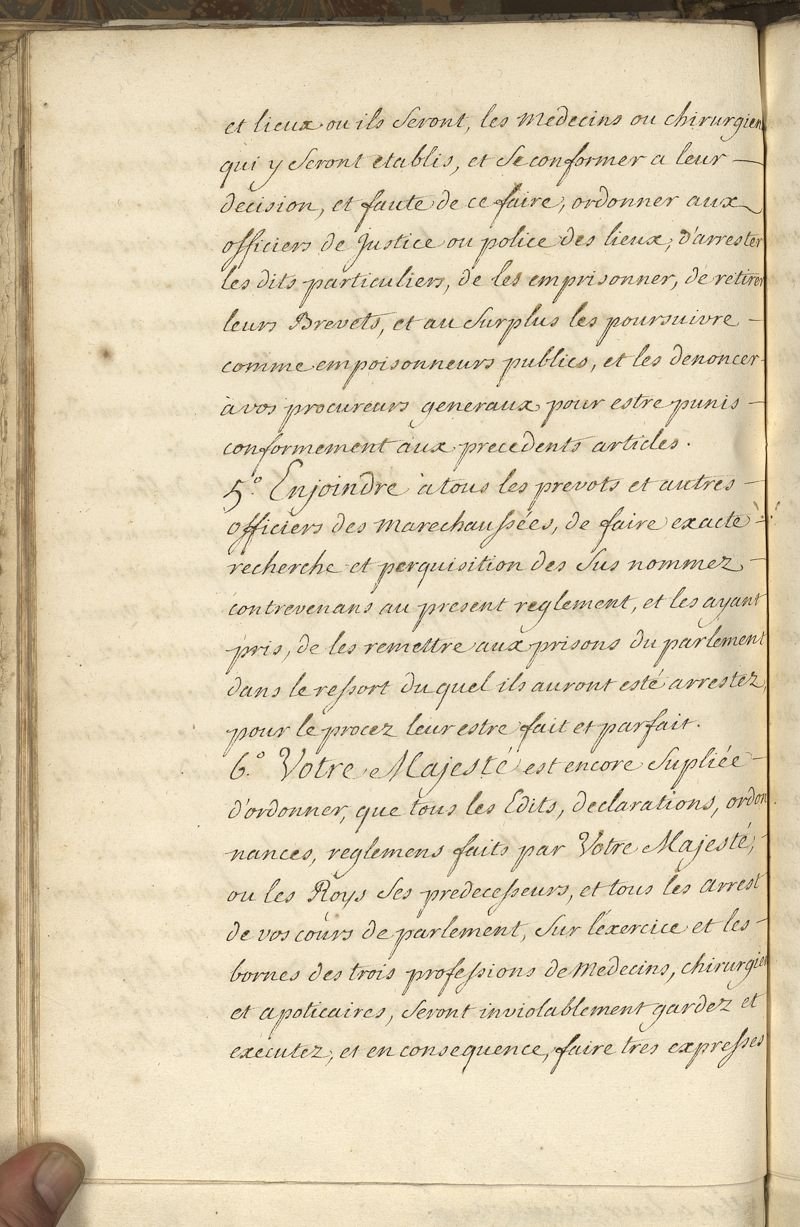 et lieux ou ils seront, les Medecins ou chirurgiens
qui y seront etablis, et se conformer a leur —
decision, et faute de ce faire, ordonner aux
officiers de Justice ou police des lieux, d'arrester
les dits particuliers, de les emprisonner, de retirer
leurs Brevets, et au surplus les poursuivre —
comme empoisonneurs publics, et les denoncer -
à vos procureurs generaux pour estre punis —
conformement aux precedents articles.
5.° Enjoindre à tous les prevots et autres —
officiers des marechaussées, de faire exacte -
recherche et perquisition des sus nommez -
contrevenans au present reglement, et les ayant
pris, de les remettre aux prisons du parlement
dans le ressort du quel ils auront esté arrestez,
pour le procez leur estre fait et parfait.
6.° Votre Majesté est encore supliée —
d'ordonner, que tous les Edits, declarations, ordon
nances, reglemens faits par Votre Majesté, -
ou les Roys ses predecesseurs, et tous les arrest
de vos cours de parlement, sur l'éxercice et les -
bornes des trois professions de Medecins, chirurgien
et apoticaires, seront inviolablement gardez et
exécutez, et en consequence, faire tres expresses